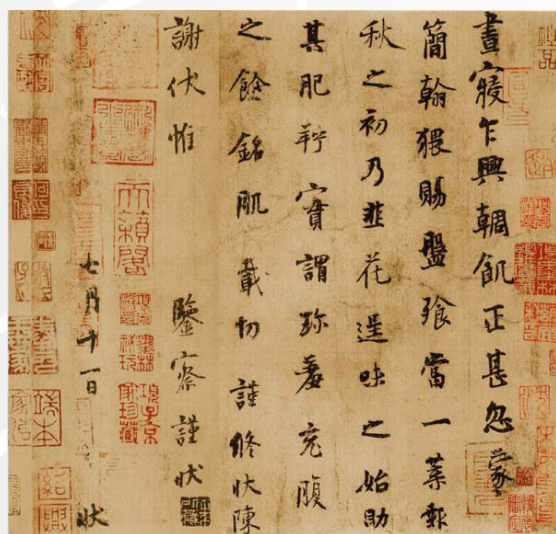 晝寢乍興輖飢正甚忽蒙
簡翰猥賜盤飧當一葉報
秋之初乃韭花逞味之始助
其肥羜實謂珍羞充腹
之餘銘肌載切謹修狀陳
謝伏惟鑒察謹狀
七月十一日狀
天籟閣
項子京家珍藏
紹興